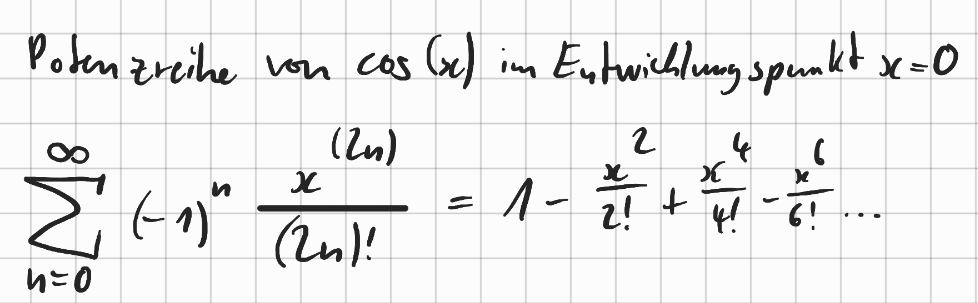 Potenzreihe von cos(x) im Entwicklungspunkt x=0
∑_{n=0}^{∞} (-1)^n x^(2n)/(2n)! = 1 - x^2/2! + x^4/4! - x^6/6! ...